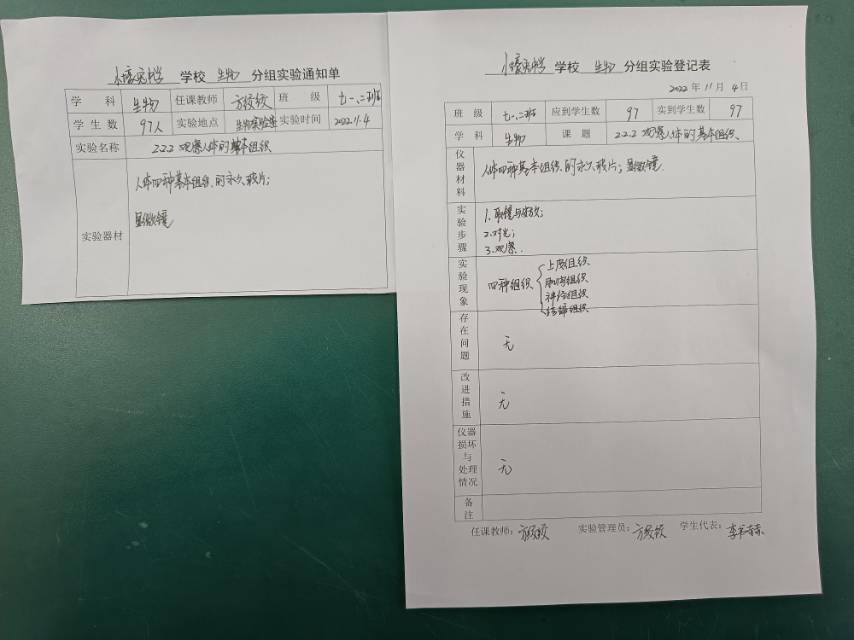 学校 生物 分组实验通知单
学科 生物 任课教师 班级 七一、二班
学生数 97人 实验地点 生物实验室 实验时间 2022.11.4
实验名称 2.2.2 观察人体的基本组织
实验器材
人体四种基本组织的永久玻片;
显微镜
学校 生物 分组实验登记表
2022年11月4日
班级 七一、二班 应到学生数 97 实到学生数 97
学科 生物 课题 2.2.2 观察人体的基本组织.
仪器材料 人体四种基本组织的永久玻片; 显微镜.
实验步骤
1.取镜与安放;
2.对光;
3.观察.
实验现象 四种组织
上皮组织
肌肉组织
神经组织
结缔组织
存在问题 无
改进措施 无
仪器损坏与处理情况 无
备注
任课教师: 实验管理员: 学生代表: